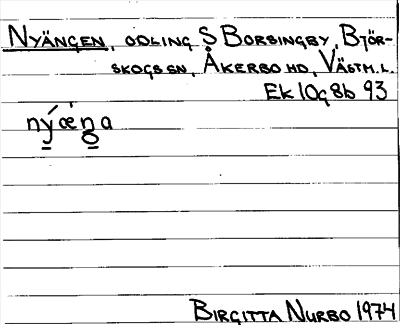 NYÄNGEN, ODLING S BORSINGBY, BJÖR-
SKOGS SN, ÅKERBO HD, VÄSTM.L.
EK 10g 8b 93
nýæ̍ŋa
BIRGITTA NURBO 1974